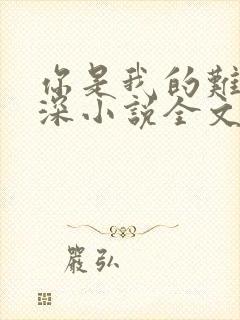 你是我的難
深小說全文
嚴弘